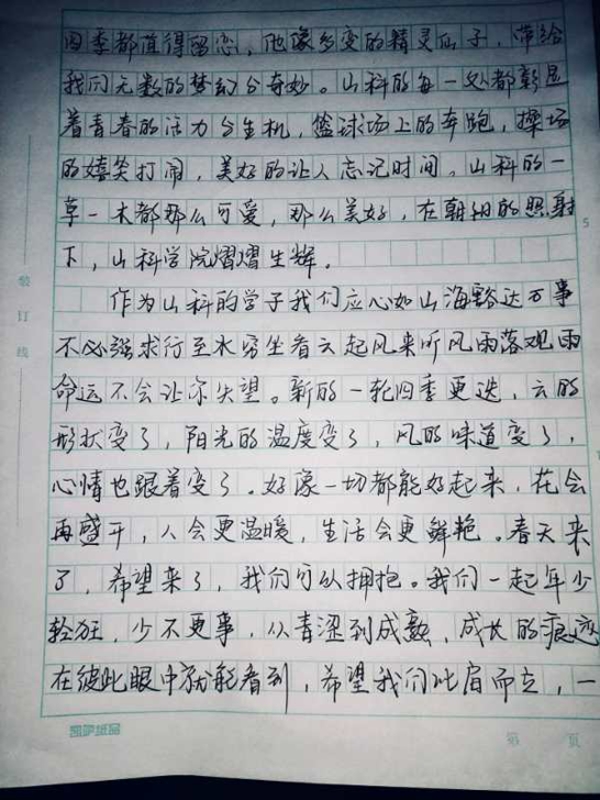 四季都值得留恋，他像多变的精灵仙子，带给
我们无数的梦幻与奇妙。山科的每一处都彰显
着青春的活力与生机，篮球场上的奔跑，操场
的嬉笑打闹，美好的让人忘记时间。山科的一
草一木都那么可爱，那么美好，在朝阳的照射
下，山科学院熠熠生辉。
作为山科的学子我们应心如山海豁达万事
不必强求行至水穷坐看云起风来听风雨落观雨
命运不会让你失望。新的一轮四季更迭，云的
形状变了，阳光的温度变了，风的味道变了，
心情也跟着变了。好像一切都能好起来，花会
再盛开，人会更温暖，生活会更鲜艳。春天来
了，希望来了，我们可以拥抱。我们一起年少
轻狂，少不更事，从青涩到成熟，成长的痕迹
在彼此眼中就能看到，希望我们比肩而立，一
装订线
5
凯萨纸品
第 页